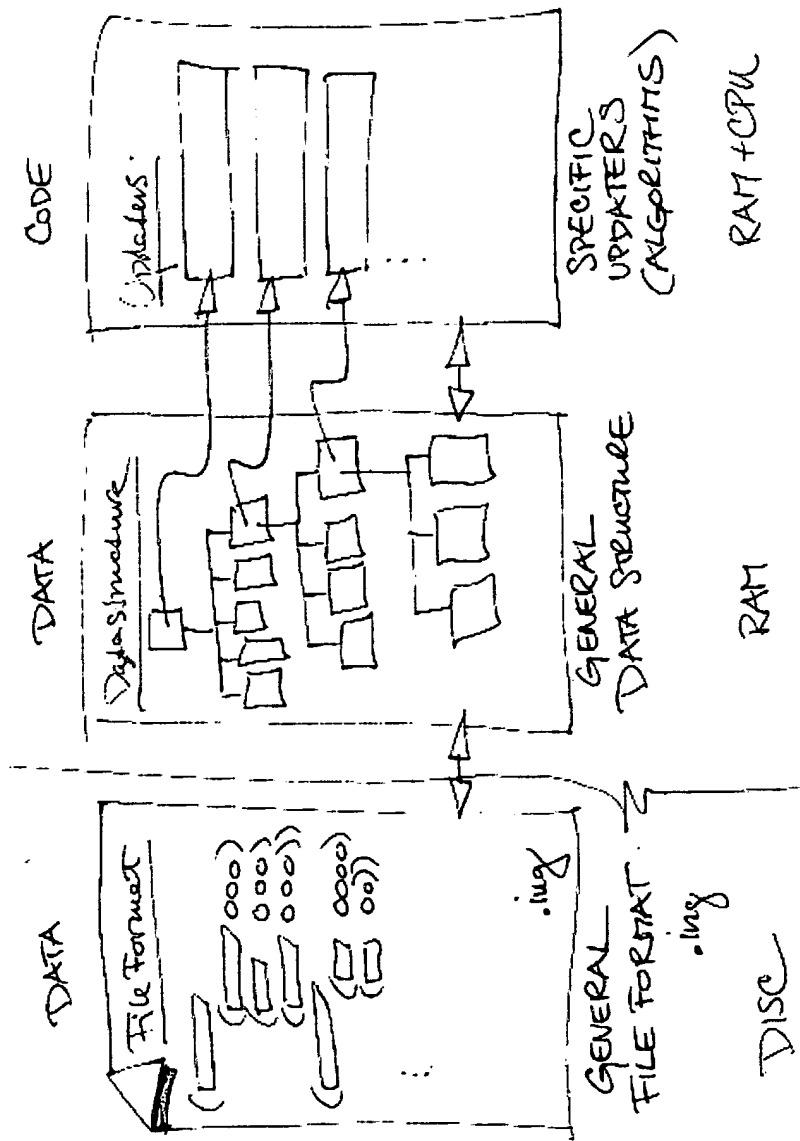 DATA
File Format
( ooo)
( ooo)
( ooo))
( oooo)
( oo))
...
.ing
GENERAL
FILE FORMAT
.ing
DISC
DATA
Datastructure
GENERAL
DATA STRUCTURE
RAM
CODE
Updaters
...
SPECIFIC
UPDATERS
(ALGORITHMS)
RAM + CPU